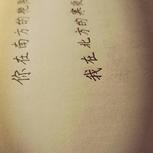 你在南方的艳
我在北方的寒夜